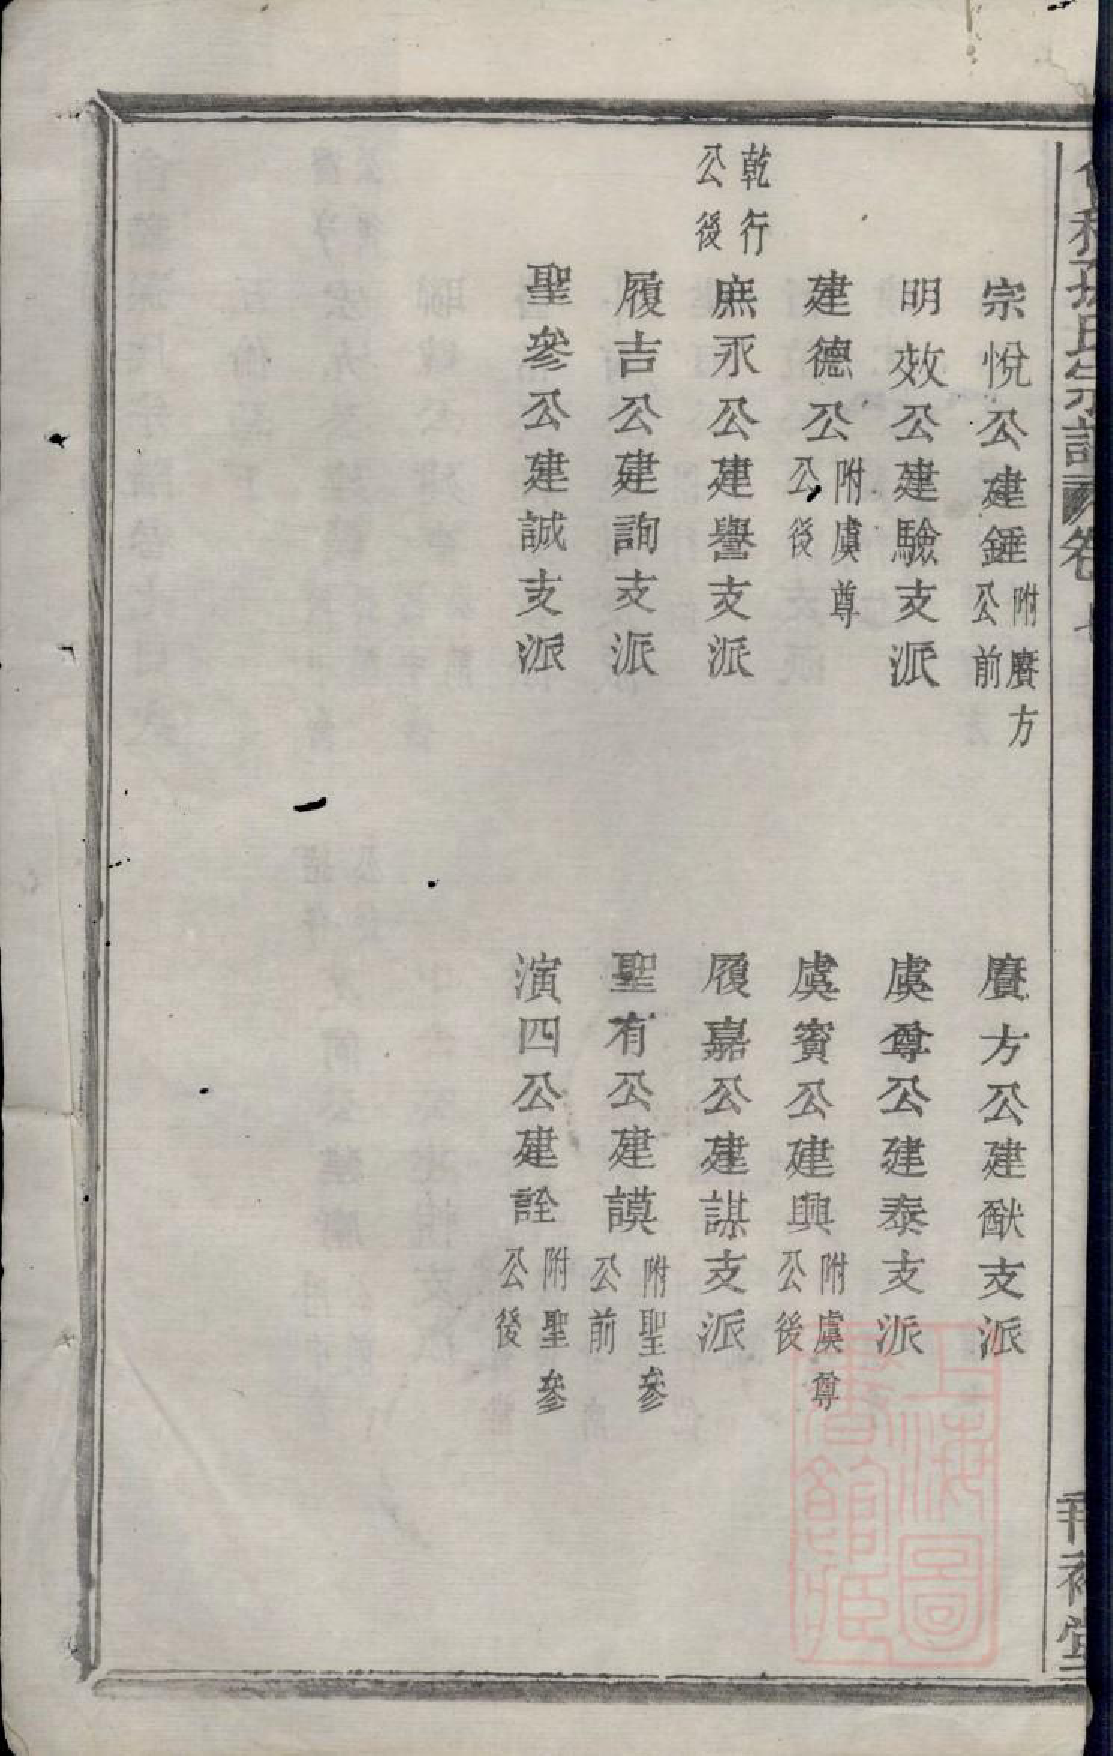 宗悅公建錘附賡方公前
賡方公建猷支派
明效公建驗支派
虞尊公建泰支派
建德公附虞尊公後
虞賓公建興附虞尊公後
乾行公後
庶永公建譽支派
履嘉公建謀支派
履吉公建詢支派
聖有公建謨附聖參公前
聖參公建誠支派
演四公建詮附聖參公後
孫氏宗譜
卷
堂
上海圖書館藏